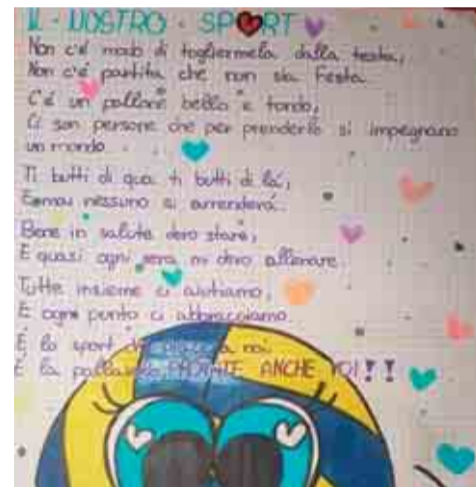 IL NOSTRO SPORT
Non c'è modo di togliermela dalla testa,
Non c'è partita che non sia Festa.
C'è un pallone bello e tondo,
Ci son persone che per prenderlo si impegnano
un mondo.
Ti butti di qua ti butti di là,
E mai nessuno si arrenderà.
Bene in salute devo stare,
E quasi ogni sera mi devo allenare.
Tutte insieme ci aiutiamo,
E ogni punto ci abbracciamo.
È lo sport che a noi.
È la pallavolo PROVATE ANCHE VOI!!